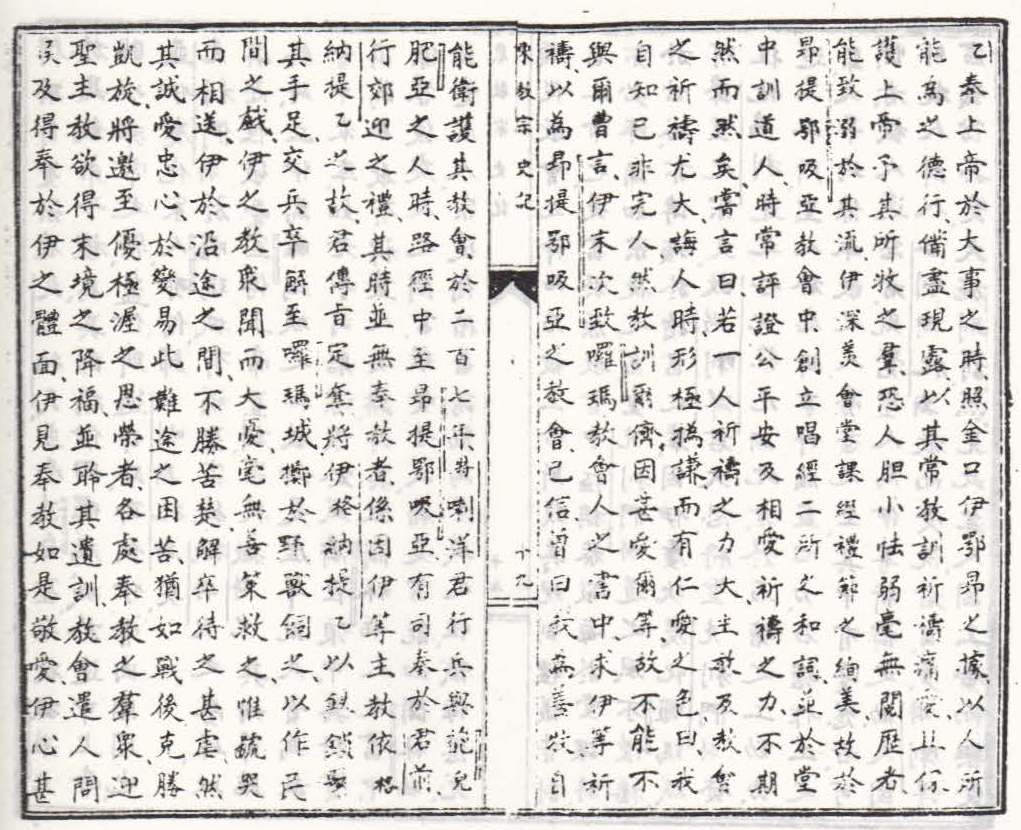 乙奉上帝於大事之時、照金口伊鄂昂之據、以人所
能為之德行、備盡現露、以其常教訓祈禱痛愛、且係
護上帝予其所牧之羣、恐人胆小怯弱毫無閱歷者、
能致溺於其流、伊深美會堂課經禮節之絢美、故於
昂提鄂吸亞教會中、創立唱經二所之和詞、並於堂
中訓道人、時常評證公平安及相愛祈禱之力、不期
然而然矣、嘗言曰、若一人祈禱之力大、主教及教會
之祈禱尤大、誨人時、形極撝謙、而有仁愛之色、曰、我
自知己非完人、然教訓爾儕、因甚愛爾等、故不能不
與爾曹言、伊末次致囉瑪教會人之書中、求伊等祈
禱、以為昂提鄂吸亞之教會、己信曾曰、我為善牧、自
東教宗史記
十九
能衛護其教會、於二百七年特喇洋君行兵與範兒
肥亞之人時、路徑中至昂提鄂吸亞、有司奏於君前、
行郊迎之禮、其時並無奉教者、係因伊等主教依格
納提乙之故、君傳旨定案、將伊格納提乙以鉄鎖繫
其手足、交兵卒解至囉瑪城、擲於野獸飼之、以作民
間之戲、伊之教衆聞而大憂、毫無善策救之、惟號哭
而相送、伊於沿途之間、不勝苦楚、解卒待之甚虐、然
其誠愛忠心、於變易此難途之困苦、猶如戰後克勝
凱旋、將邀至優極渥之恩榮者、各處奉教之羣衆、迎
聖主教欲得末境之降福、並聆其遺訓、教會遣人問
候及得奉於伊之體面、伊見奉教如是敬愛伊心甚